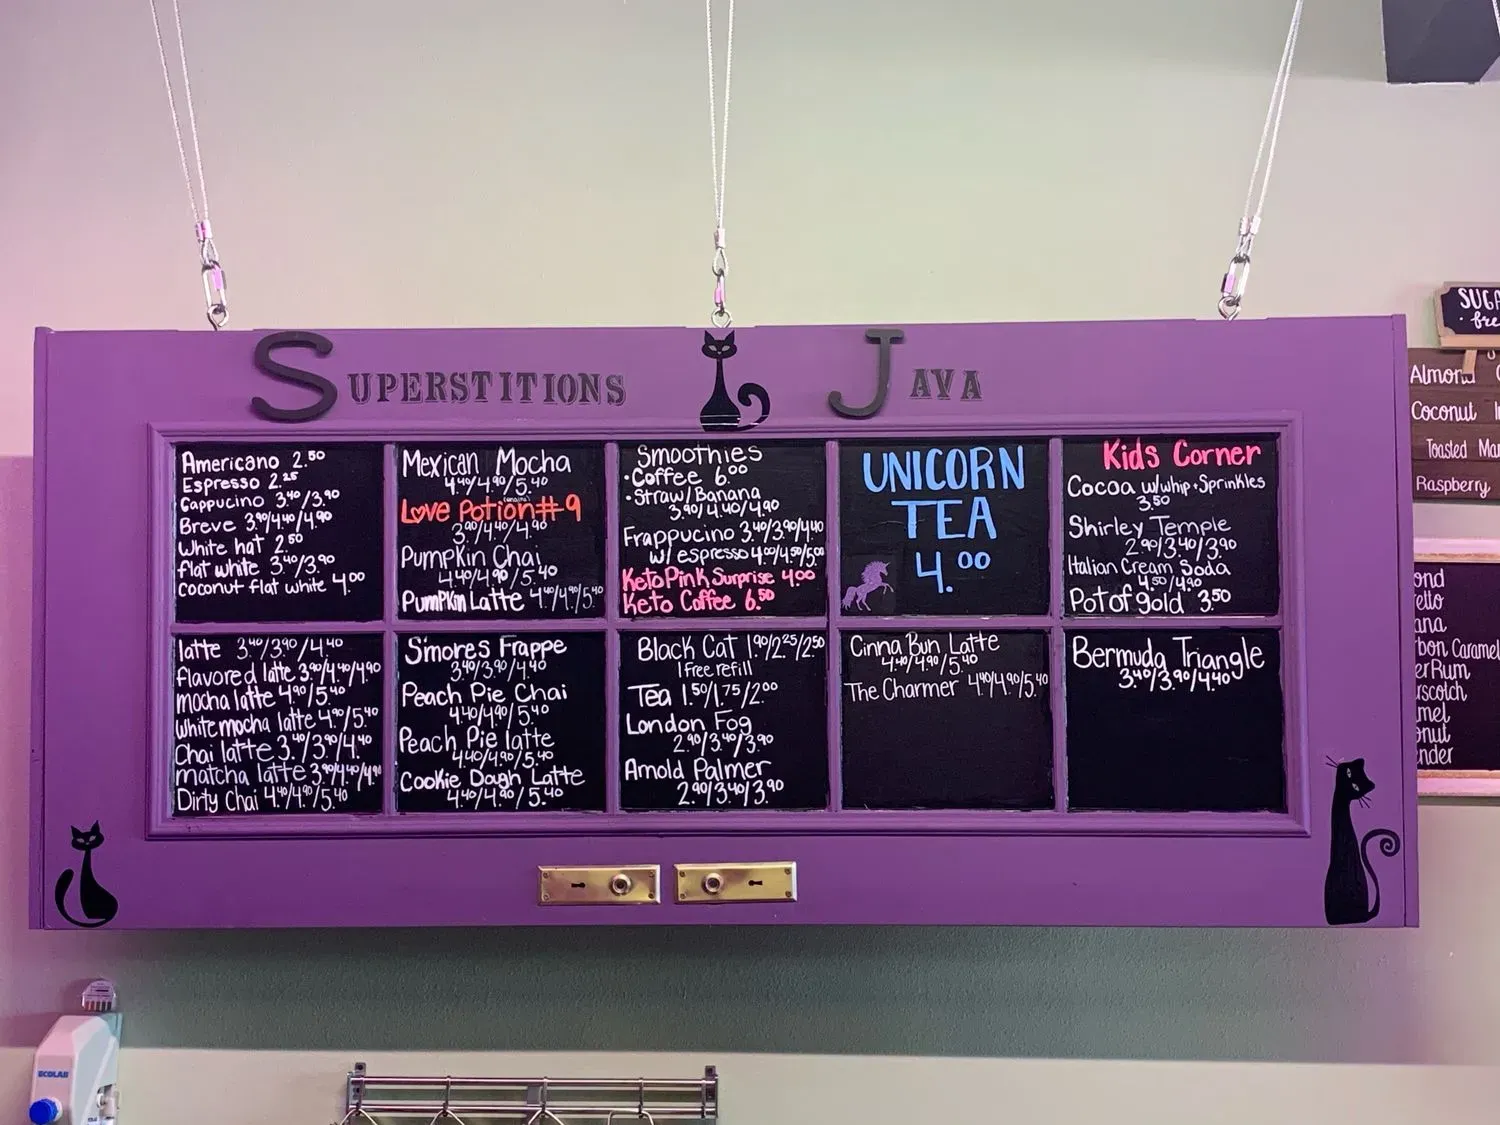 SUPERSTITIONS JAVA
Americano 2.50
Espresso 2.25
Cappucino 3.40/3.90
Breve 3.90/4.40/4.90
White hat 2.50
flat white 3.40/3.90
coconut flat white 4.00
Mexican Mocha
4.40/4.90/5.40
Love Potion #9
3.90/4.40/4.90
Pumpkin Chai
4.40/4.90/5.40
Pumpkin Latte 4.40/4.90/5.40
Smoothies
•Coffee 6.00
•Straw/Banana
3.90/4.40/4.90
Frappucino 3.40/3.90/4.40
w/ espresso 4.00/4.50/5.00
Keto Pink Surprise 4.00
Keto Coffee 6.50
UNICORN
TEA
4.00
Kids Corner
Cocoa w/whip+Sprinkles
3.50
Shirley Temple
2.90/3.40/3.90
Italian Cream Soda
4.50/4.90
Pot of gold 3.50
latte 3.40/3.90/4.40
flavored latte 3.90/4.40/4.90
mocha latte 4.90/5.40
White mocha latte 4.90/5.40
Chai latte 3.40/3.90/4.40
matcha latte 3.90/4.40/4.90
Dirty Chai 4.40/4.90/5.40
S'mores Frappe
3.40/3.90/4.40
Peach Pie Chai
4.40/4.90/5.40
Peach Pie latte
4.40/4.90/5.40
Cookie Dough Latte
4.40/4.90/5.40
Black Cat 1.90/2.25/2.50
1 free refill
Tea 1.50/1.75/2.00
London Fog
2.90/3.40/3.90
Arnold Palmer
2.90/3.40/3.90
Cinna Bun Latte
4.40/4.90/5.40
The Charmer 4.40/4.90/5.40
Bermuda Triangle
3.40/3.90/4.40
Almond
Coconut
Toasted
Raspberry
Caramel
Rum
ECOLAB